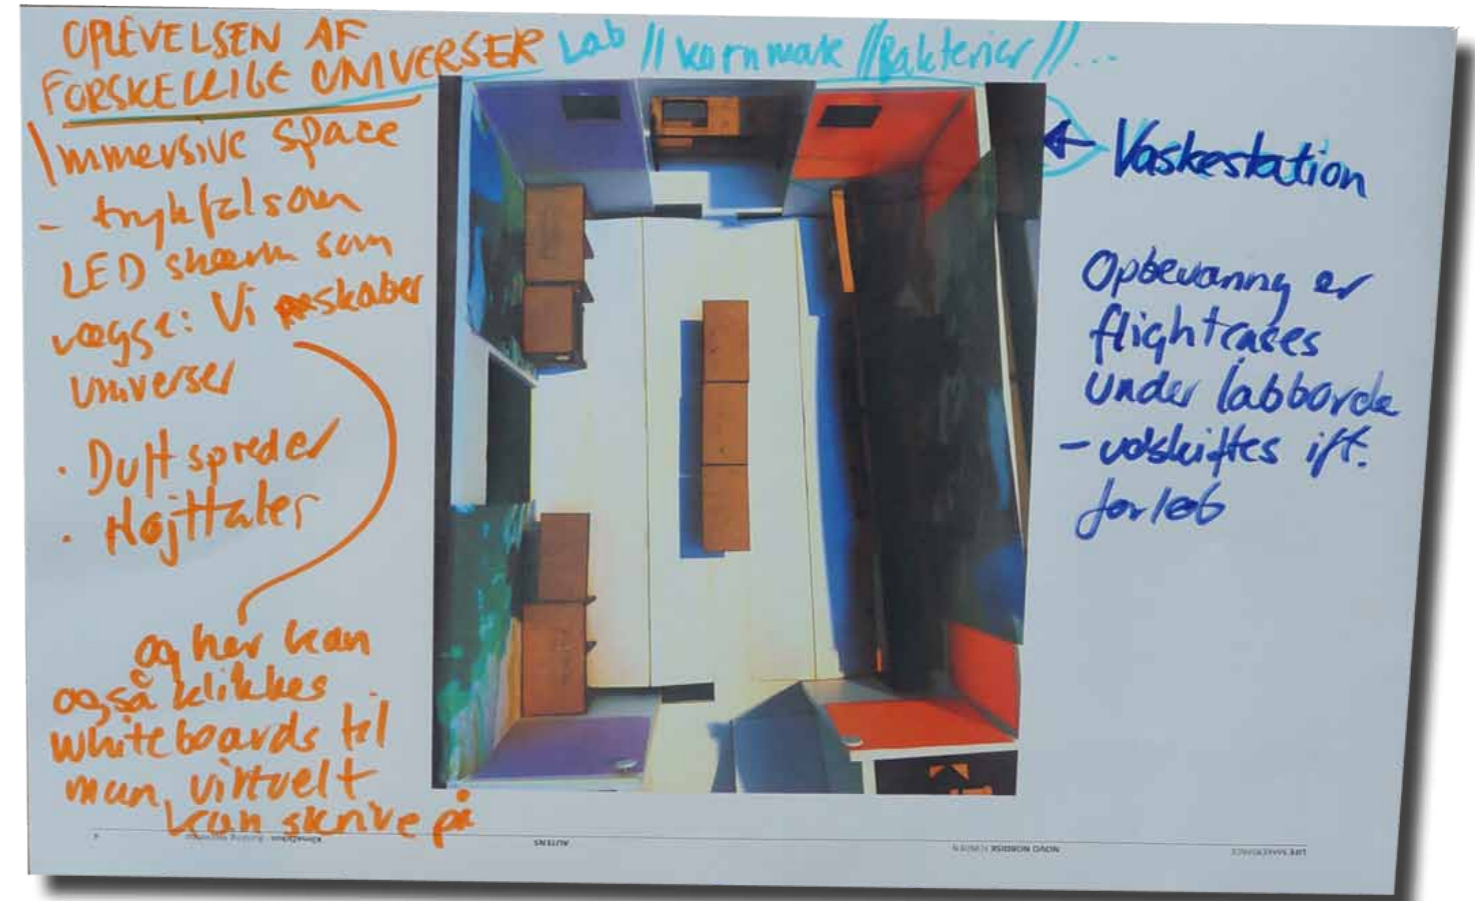 OPLEVELSEN AF
FORSKELLIGE UNIVERSER Lab // kornmark // Bakterier // ...
Immersive space
- trykfølsom
LED skærm som
vægge: Vi skaber
universer
• Duftspreder
• Højttaler
og her kan
også klikkes
whiteboards til
man virtuelt
kan skrive på
← Vaskestation
Opbevaring er
flightcases
under labborde
- udskiftes ift.
forløb
AUTENS
NOVO NORDISK FONDEN
LIFE MAKERSPACE